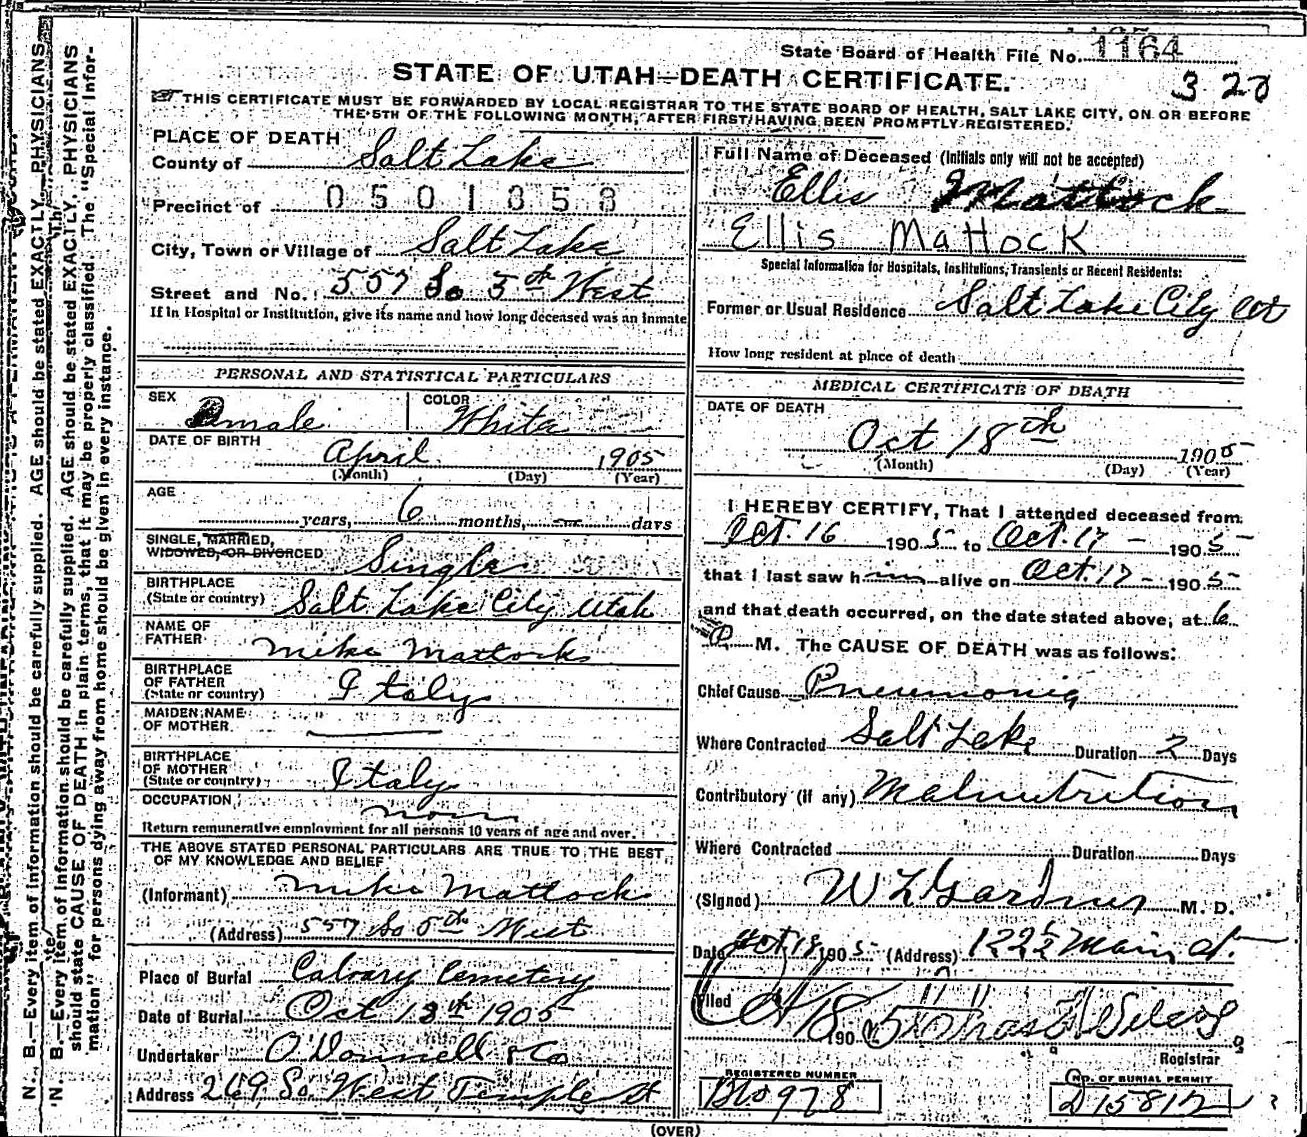 State Board of Health File No. 1164
320
STATE OF UTAH—DEATH CERTIFICATE.
THIS CERTIFICATE MUST BE FORWARDED BY LOCAL REGISTRAR TO THE STATE BOARD OF HEALTH, SALT LAKE CITY, ON OR BEFORE
THE 5TH OF THE FOLLOWING MONTH, AFTER FIRST HAVING BEEN PROMPTLY REGISTERED.
PLACE OF DEATH
County of Salt Lake
Precinct of 0501858
City, Town or Village of Salt Lake
Street and No. 557 So 5th West
If in Hospital or Institution, give its name and how long deceased was an inmate
PERSONAL AND STATISTICAL PARTICULARS
SEX male COLOR White
DATE OF BIRTH
April 1905
(Month) (Day) (Year)
AGE
years, 6 months, — days
SINGLE, MARRIED,
WIDOWED, OR DIVORCED Single
BIRTHPLACE
(State or country) Salt Lake City Utah
NAME OF
FATHER Mike Mattock
BIRTHPLACE
OF FATHER
(State or country) Italy
MAIDEN NAME
OF MOTHER
BIRTHPLACE
OF MOTHER
(State or country) Italy
OCCUPATION
Return remunerative employment for all persons 10 years of age and over.
THE ABOVE STATED PERSONAL PARTICULARS ARE TRUE TO THE BEST
OF MY KNOWLEDGE AND BELIEF
(Informant) Mike Mattock
(Address) 557 So 5th West
Place of Burial Calvary Cemetery
Date of Burial Oct 18th 1905
Undertaker O'Donnell & Co
Address 269 So. West Temple St
Full Name of Deceased (Initials only will not be accepted)
Ellis Mattock
Ellis Mattock
Special Information for Hospitals, Institutions, Transients or Recent Residents:
Former or Usual Residence Salt Lake City Ut
How long resident at place of death
MEDICAL CERTIFICATE OF DEATH
DATE OF DEATH
Oct 18th 1905
(Month) (Day) (Year)
I HEREBY CERTIFY, That I attended deceased from
Oct. 16 1905 to Oct. 17 — 1905
that I last saw him alive on Oct. 17 — 1905
and that death occurred, on the date stated above, at 6
P M. The CAUSE OF DEATH was as follows:
Chief Cause Pneumonia
Where Contracted Salt Lake Duration 2 Days
Contributory (if any) Malnutrition
Where Contracted Duration Days
(Signed) W L Gardner M. D.
Date Oct 18 1905 (Address) 122½ Main St.
Filed Oct 18 1905
Registrar
REGISTERED NUMBER
B10978
NO. OF BURIAL PERMIT
D15817
(OVER)
N. B.—Every item of information should be carefully supplied. AGE should be stated EXACTLY. PHYSICIANS
N. B.—Every item of information should be carefully supplied. AGE should be stated EXACTLY. PHYSICIANS
should state CAUSE OF DEATH in plain terms, that it may be properly classified. The "Special Infor-
mation" for persons dying away from home should be given in every instance.